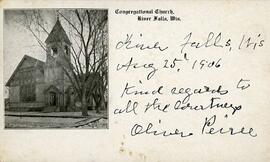 Congregational Church,
River Falls, Wis.
River Falls, Wis
Aug 25, 1906
Kind regards to
all the
Oliver Peirce